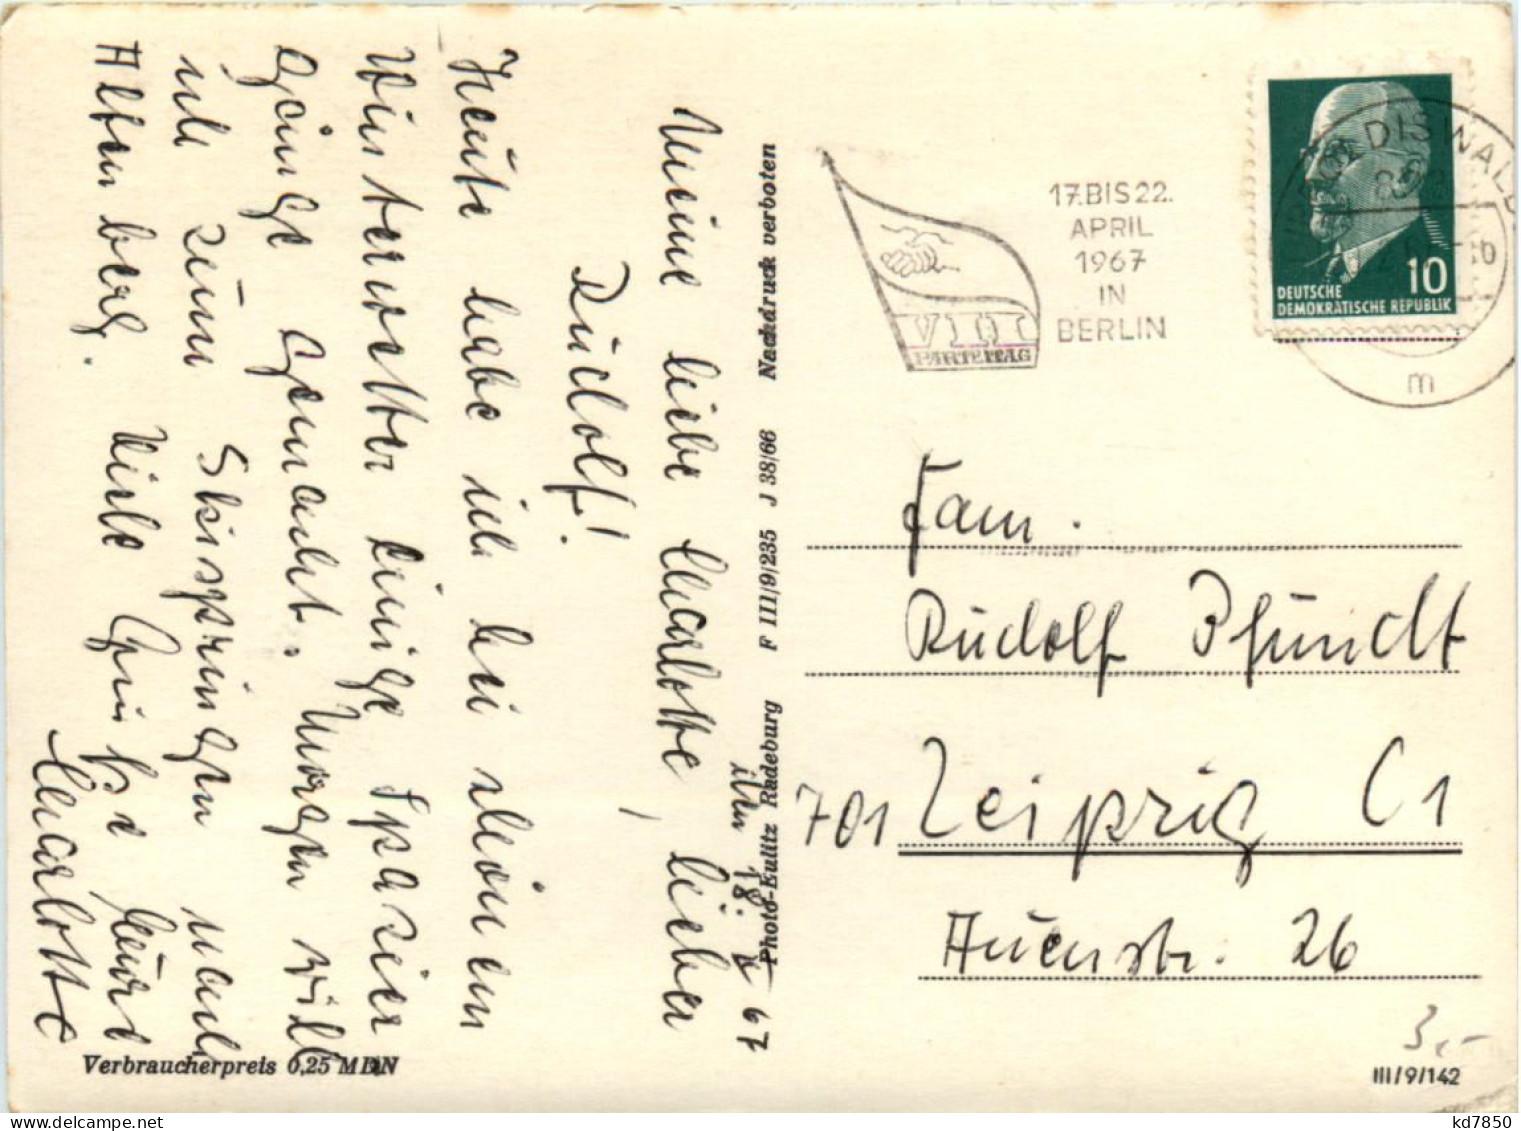 ihm 18. 67
Meine liebe Charlotte, lieber
Rudolf!
Heute habe ich bei schönem
Winterwetter einige Spazier
gänge gemacht. Morgen will
ich zum Skispringen nach
Altenberg. Viele Grüße Eure
Charlotte
Verbraucherpreis 0,25 MDN
Photo-Eulitz Radeburg F III/9/235 J 38/66 Nachdruck verboten
17. BIS 22.
APRIL
1967
IN
BERLIN
VII
PARTEITAG
10
DEUTSCHE
DEMOKRATISCHE REPUBLIK
m
Fam.
Rudolf Pfundt
701 Leipzig C1
Auenstr. 26
3,-
III/9/142
www.delcampe.net
kd7850